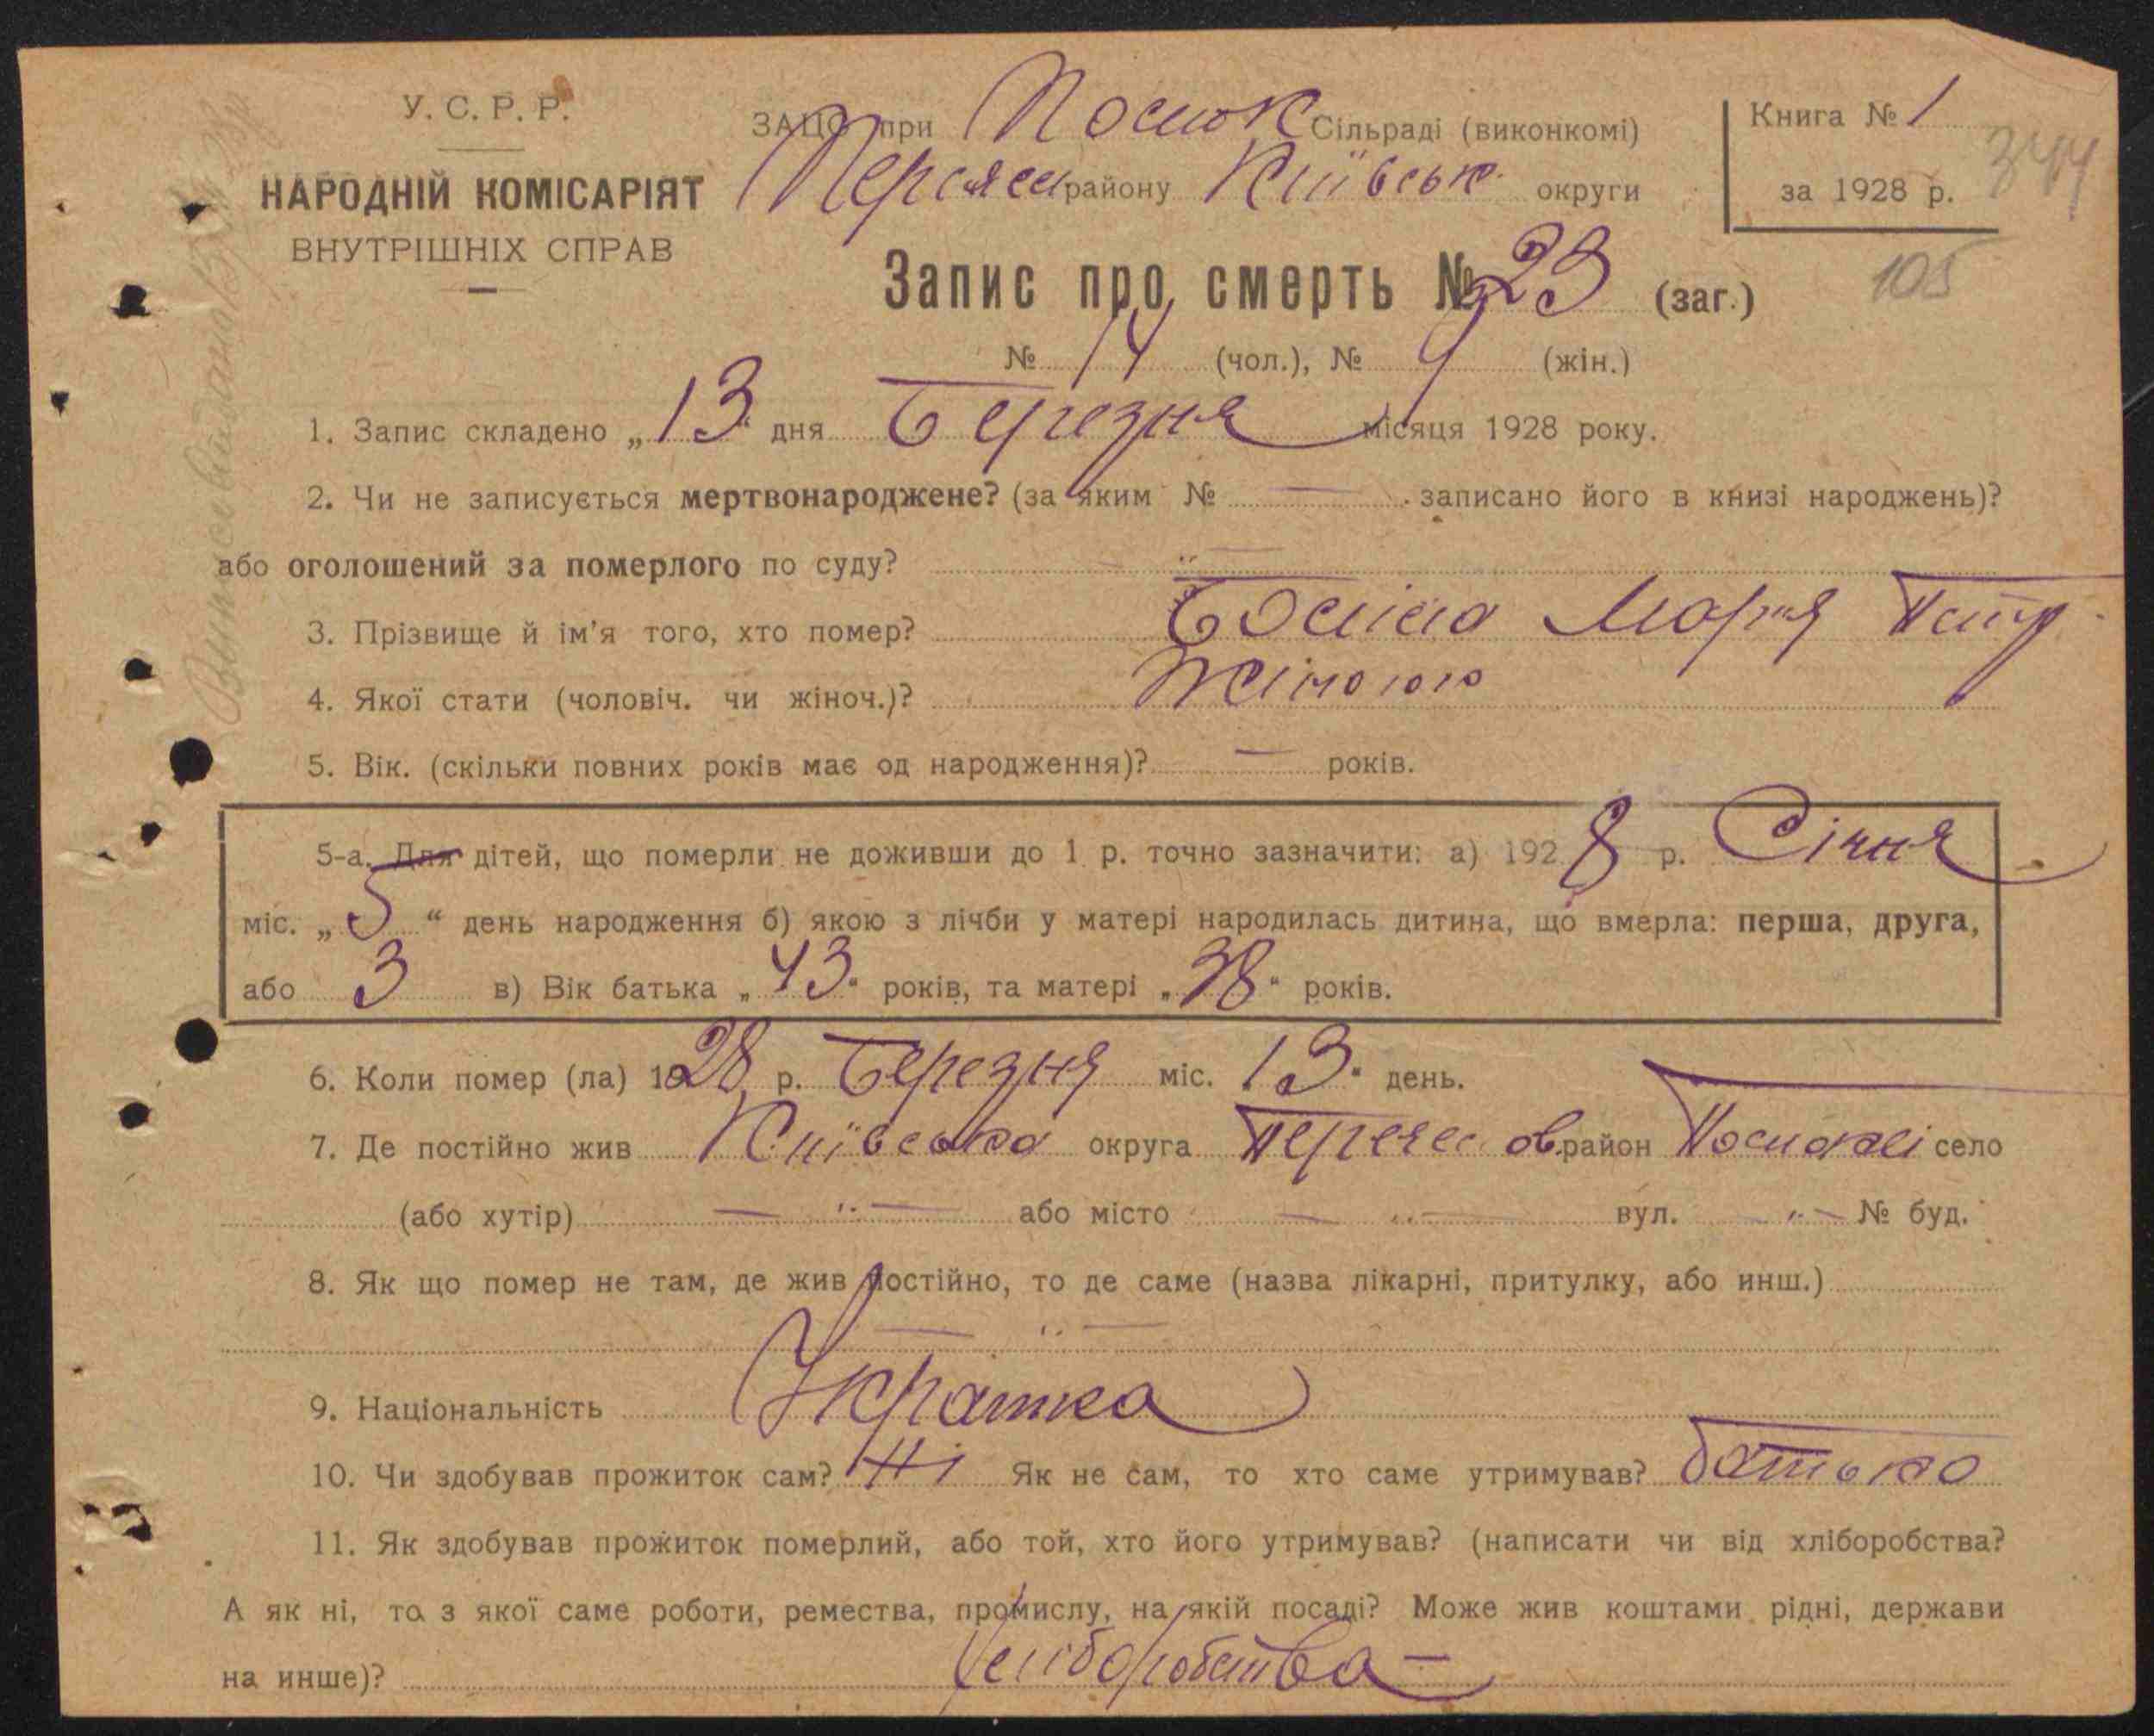 У. С. Р. Р.
НАРОДНІЙ КОМІСАРІЯТ
ВНУТРІШНІХ СПРАВ
ЗАЦС при Помок Сільраді (виконкомі)
Переясл району Київськ. округи
Книга № 1
за 1928 р.
344
105
Запис про смерть № 23 (заг.)
№ 14 (чол.), № 9 (жін.)
1. Запис складено „13“ дня Березня місяця 1928 року.
2. Чи не записується мертвонароджене? (за яким № — записано його в книзі народжень)?
або оголошений за померлого по суду? — „ —
3. Прізвище й ім'я того, хто помер? Марія Петр
4. Якої стати (чоловіч. чи жіноч.)? Жіночою
5. Вік. (скільки повних років має од народження)? — років.
5-а. Для дітей, що померли не доживши до 1 р. точно зазначити: а) 1928 р. Січня
міс. „5“ день народження б) якою з лічби у матері народилась дитина, що вмерла: перша, друга,
або 3 в) Вік батька „43“ років, та матері „38“ років.
6. Коли помер (ла) 1928 р. Березня міс. 13“ день.
7. Де постійно жив Київська округа Переяслов. район село
(або хутір) — „ — або місто — „ — вул. — „ — № буд.
8. Як що помер не там, де жив постійно, то де саме (назва лікарні, притулку, або инш.)
— „ —
9. Національність Українка
10. Чи здобував прожиток сам? Ні Як не сам, то хто саме утримував? батько
11. Як здобував прожиток померлий, або той, хто його утримував? (написати чи від хліборобства?
А як ні, то з якої саме роботи, ремества, промислу, на якій посаді? Може жив коштами рідні, держави
на инше)? Хліборобства —